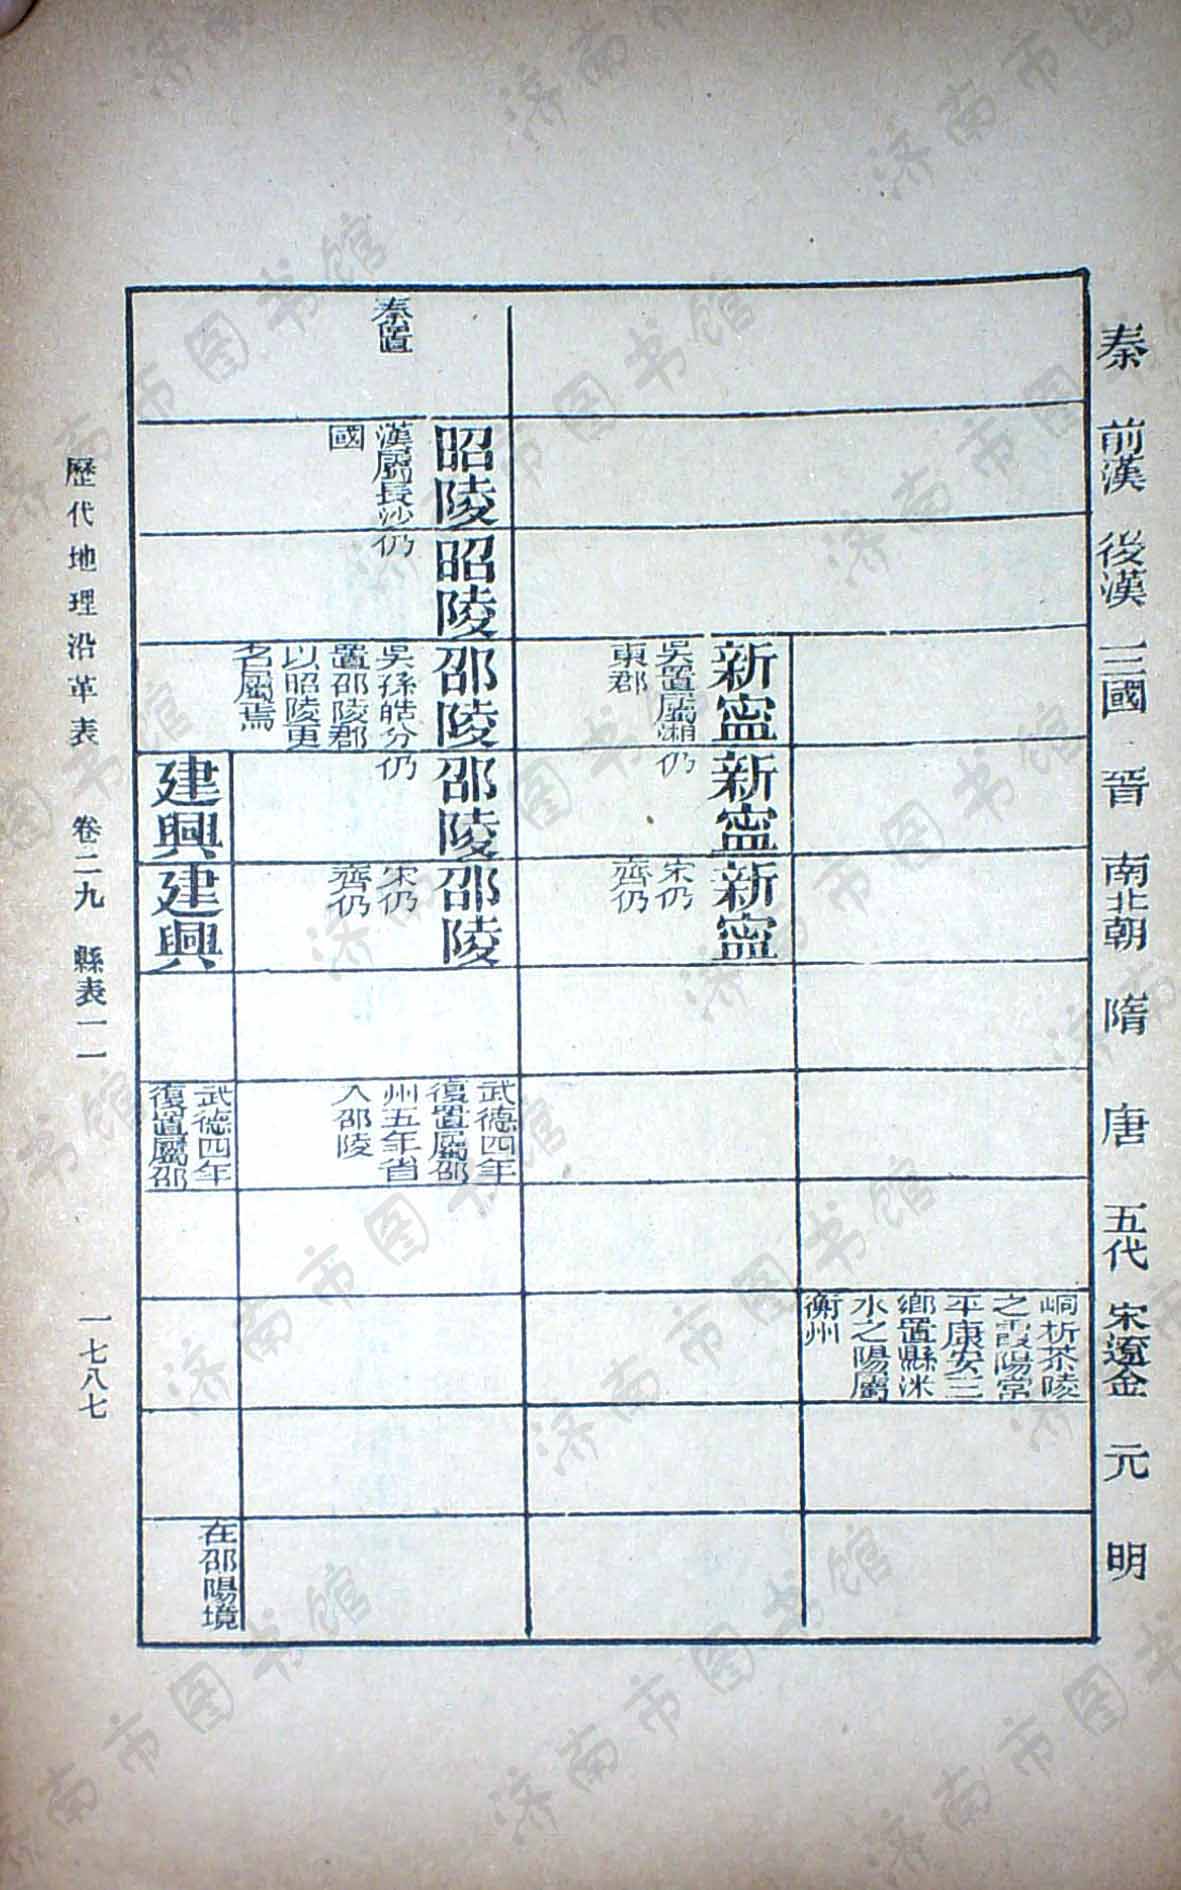 秦
前漢
後漢
三國
晉
南北朝
隋
唐
五代
宋遼金
元
明
峒析茶陵
之霞陽常
平康安三
鄉置縣洣
水之陽屬
衡州
新寍
吳置屬湘
東郡
新寍
仍
新寍
宋仍
齊仍
秦置
昭陵
漢屬長沙
國
昭陵
仍
邵陵
吳孫皓分
置邵陵郡
以昭陵更
名屬焉
邵陵
仍
邵陵
宋仍
齊仍
武德四年
復置屬邵
州五年省
入邵陵
建興
建興
武德四年
復置屬邵
在邵陽境
歷代地理沿革表 卷二九 縣表一一 一七八七
济南市图书馆